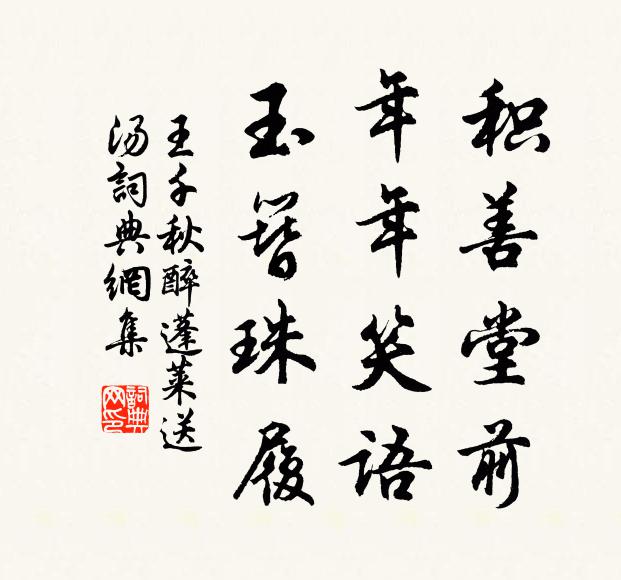 积善堂前
年年笑语
玉簪珠履
王千秋醉蓬莱送
汤词典网集
词典
网印